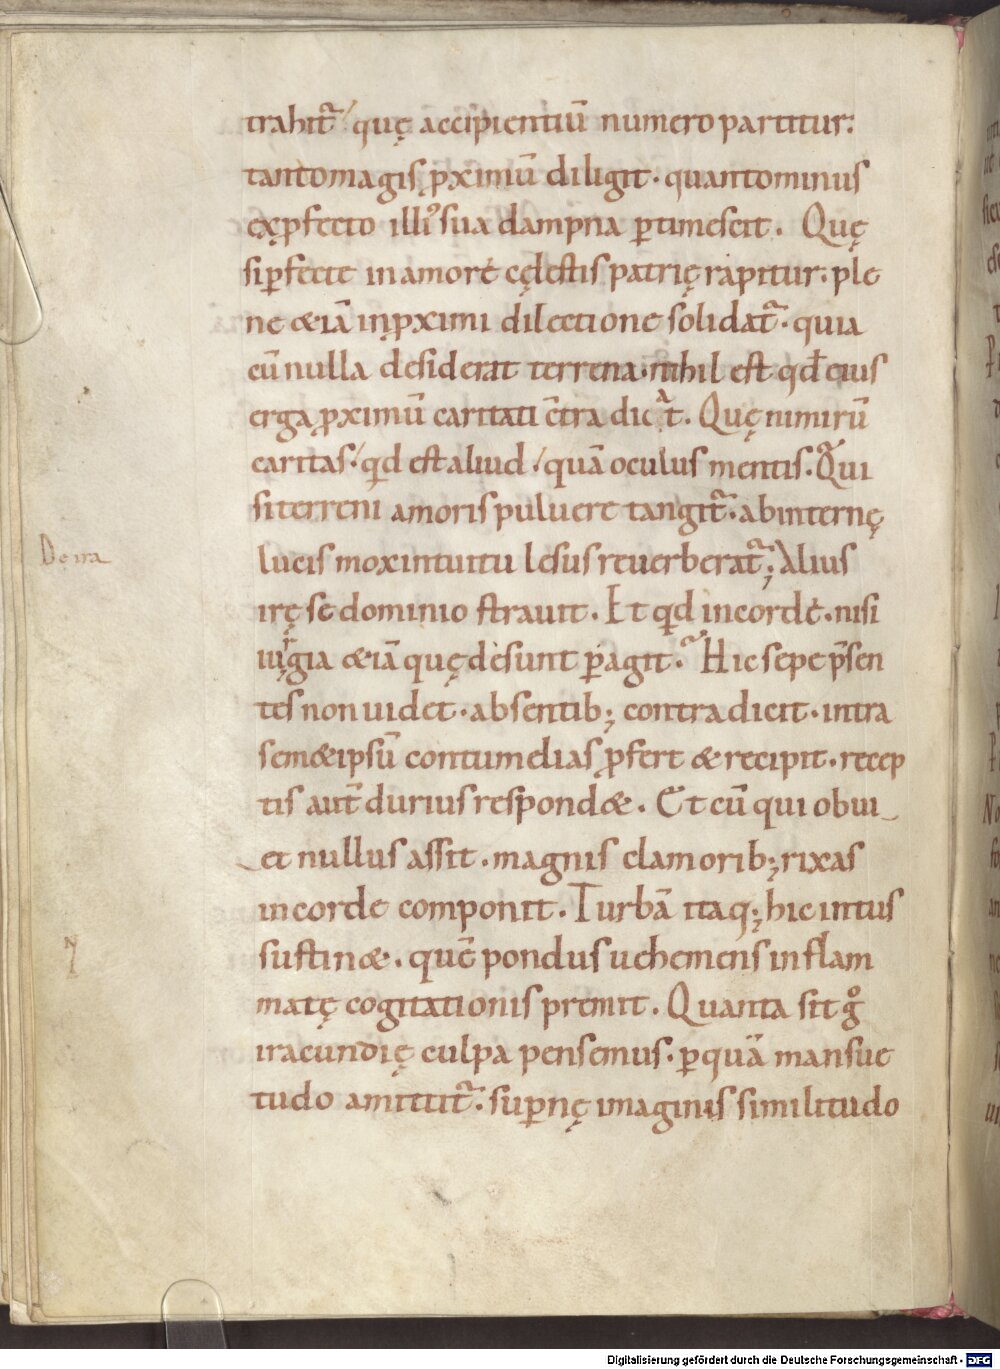 trahit᷑ / quę accipientiū numero partitur:
tantomagis ꝓximū diligit · quantominus
exꝓfecto illiꝰ sua dampna ꝑtimescit . Quę
siꝑfecte in amorė cęlestis patrię rapitur · ple
ne &iā inꝓximi dilectione solidat᷑ · quia
cū nulla desiderat terrena · nihil est qd̄ eius
erga ꝓximū caritati c̄tra dicat . Quę nimirū
caritas · / qd̄ est aliud · / quā oculus mentis . Qui
si terreni amoris puluere tangit᷑ · ab internę
De ira
lucis mox intuitu lesus reuerberat᷑ ; Alius
irę se dominio strauit . Et qd̄ in cordė · nisi
iurgia &iā quę dėsunt ꝑagit . Hic sepe p̄sen
tes non uidet · absentib; contradicit · intra
sem&ipsū contumelias ꝓfert & recipit · recep
tis aut̄ durius respond& . Et cū qui obui
et nullus assit · magnis clamorib; rixas
in corde componit . Turbā itaq; hic intus
sustin& · quē pondus uehemens inflam
matę cogitationis premit . Quanta sit gͦ
iracundię culpa pensemus · ꝑquā mansue
tudo amittit᷑ · suꝑnę imaginis similitudo
Digitalisierung gefördert durch die Deutsche Forschungsgemeinschaft - DFG